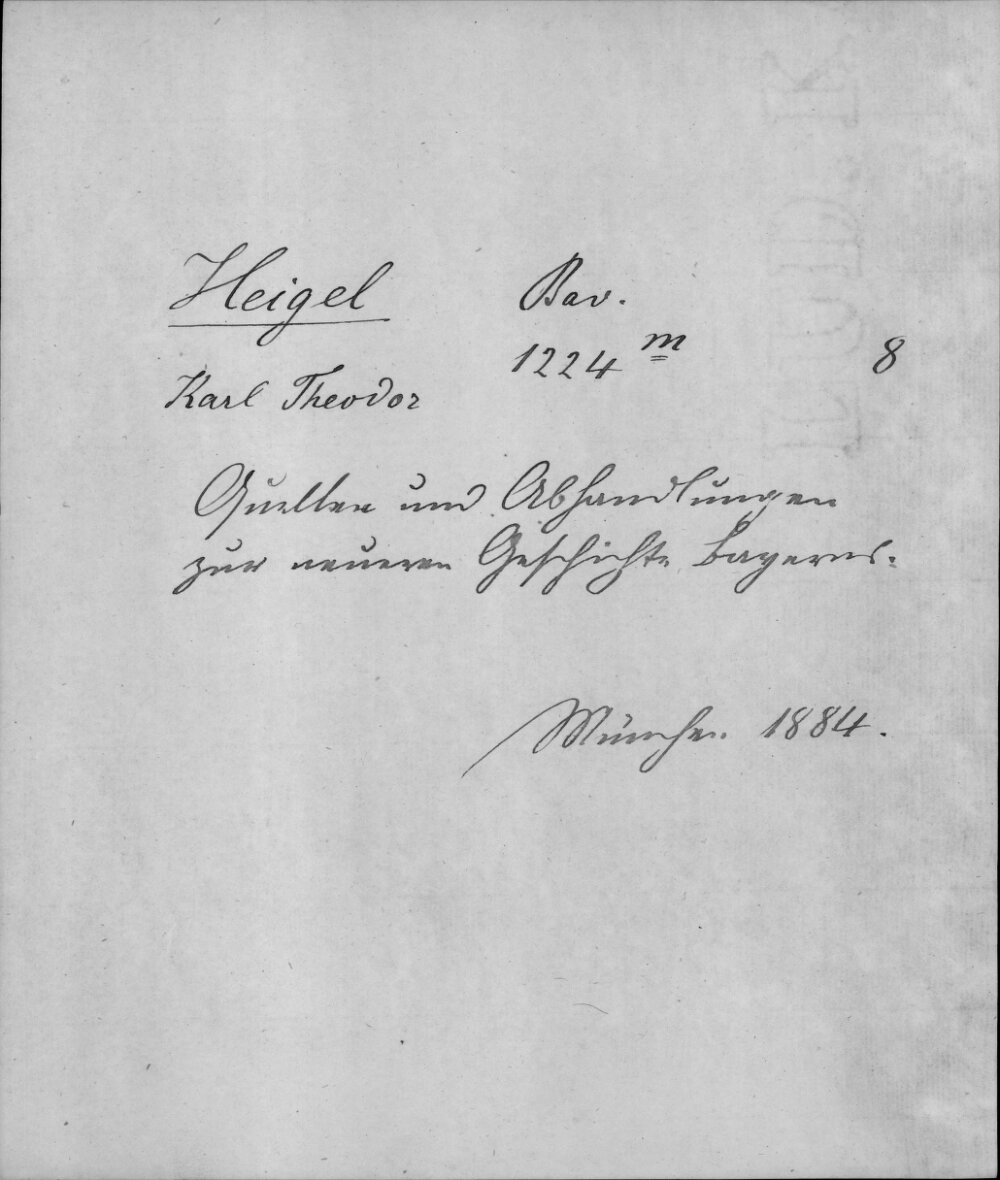 Heigel Bav.
1224 m 8
Karl Theodor
Quellen und Abhandlungen
zur neueren Geschichte Bayerns.
München 1884.